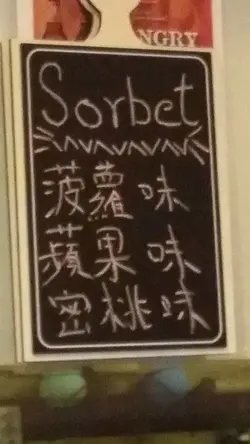 NGRY
Sorbet
菠蘿味
蘋果味
密桃味